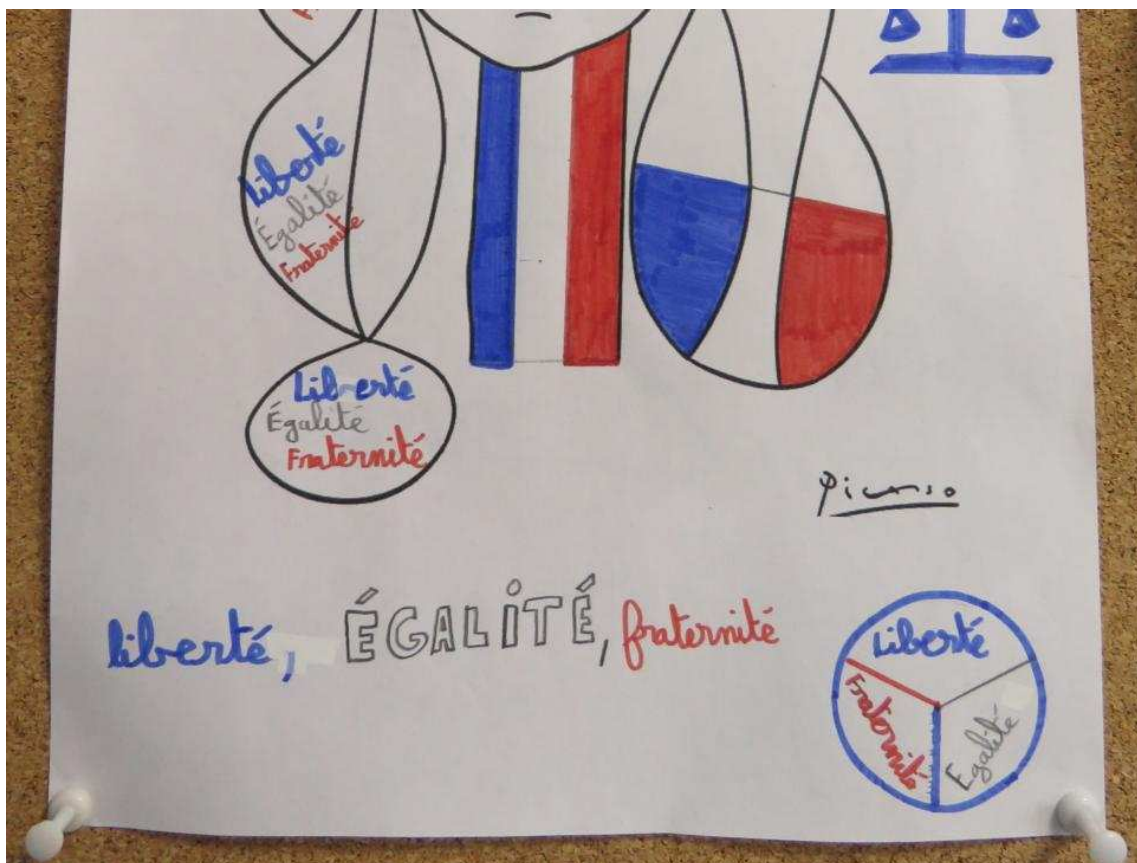 Liberté
Égalité
Fraternité
Liberté
Égalité
Fraternité
Picasso
liberté, ÉGALITÉ, fraternité
Liberté
Fraternité
Égalité